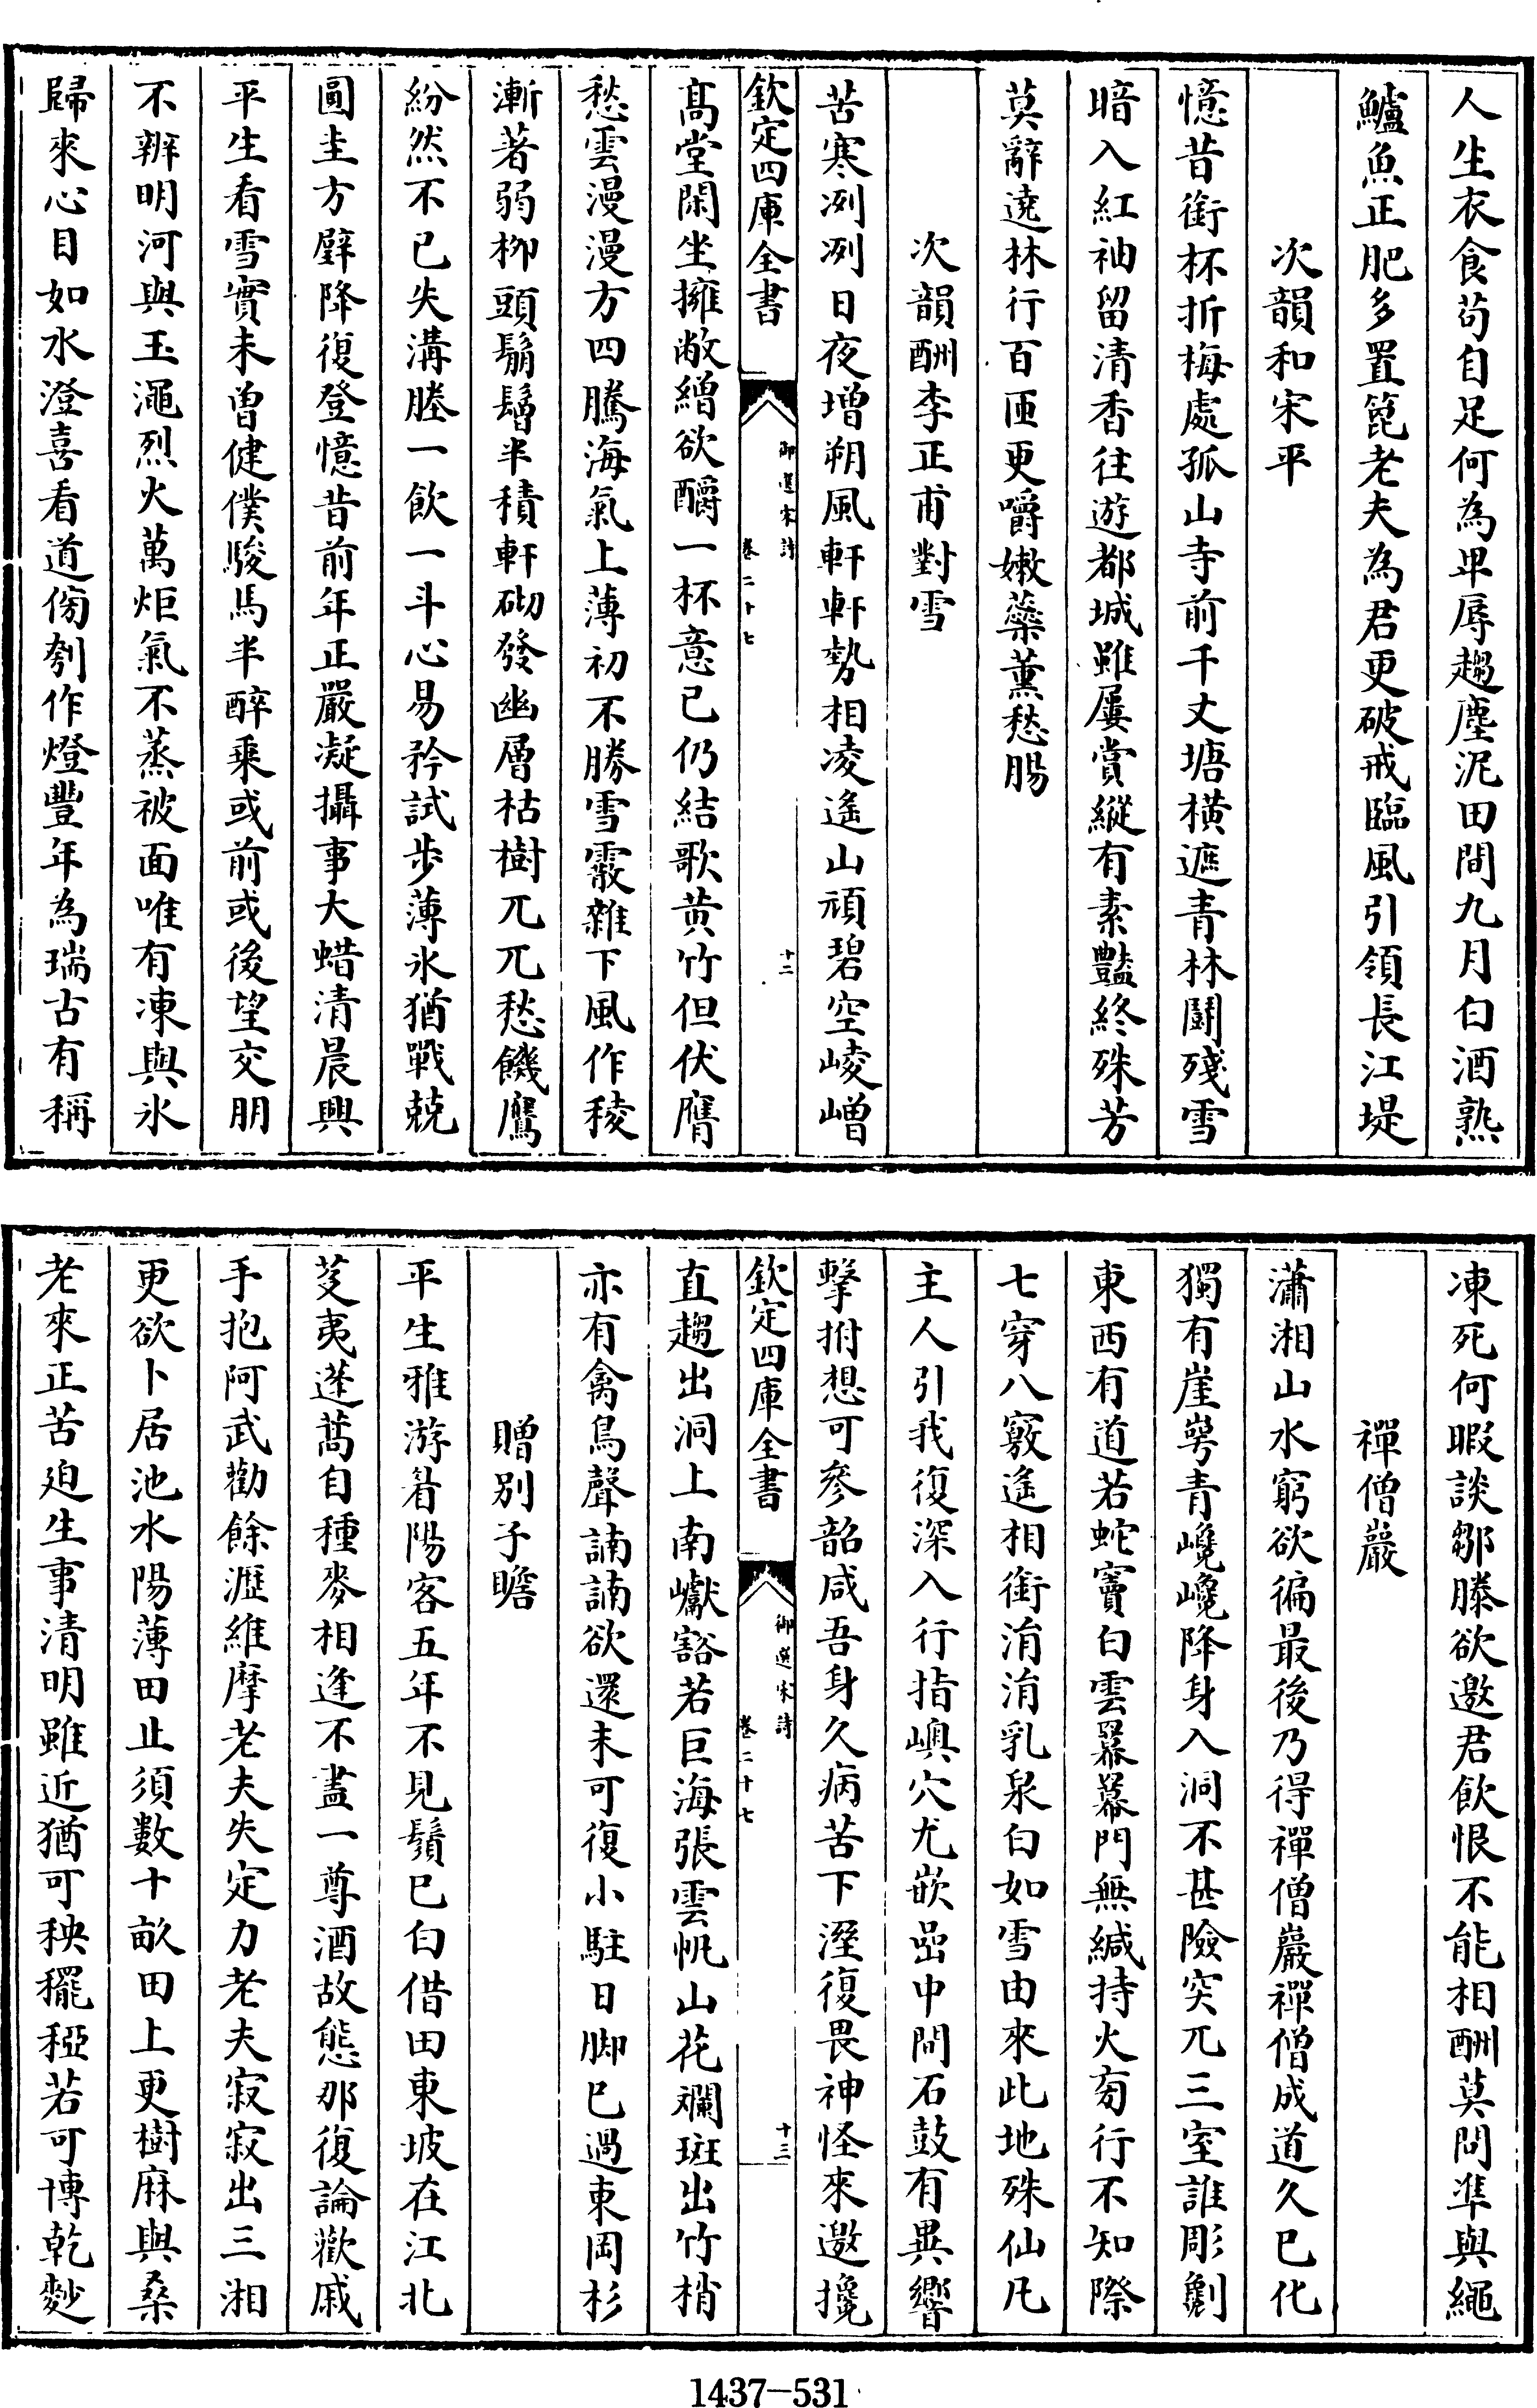 人生衣食苟自足何為卑辱趨塵泥田間九月白酒熟
鱸魚正肥多置篦老夫為君更破戒臨風引領長江堤
次韻和宋平
憶昔銜杯折梅處孤山寺前千丈塘橫遮青林鬭殘雪
暗入紅袖留清香往遊都城雖屢賞縱有素豔終殊芳
莫辭遶林行百匝更嚼嫩蘂薰愁腸
次韻酬李正甫對雪
苦寒冽冽日夜增朔風軒軒勢相凌遙山頑碧空崚嶒
欽定四庫全書
御選宋詩
卷二十七
十二
高堂閑坐擁敝繒欲釂一杯意已仍結歌黄竹但伏膺
愁雲漫漫方四騰海氣上薄初不勝雪霰雜下風作稜
漸著弱栁頭鬅鬙半積軒砌發幽層枯樹兀兀愁饑鷹
紛然不已失溝塍一飲一斗心易矜試步薄氷猶戰兢
圓圭方璧降復登憶昔前年正嚴凝攝事大蜡清晨興
平生看雪實未曾健僕駿馬半醉乘或前或後望交朋
不辨明河與玉澠烈火萬炬氣不蒸被面唯有凍與氷
歸來心目如水澄喜看道傍刳作燈豐年為瑞古有稱
凍死何暇談鄒滕欲邀君飲恨不能相酬莫問準與繩
禪僧巖
瀟湘山水窮欲徧最後乃得禪僧巖禪僧成道久已化
獨有崖崿青巉巉降身入洞不甚險突兀三室誰彫劖
東西有道若蛇竇白雲羃羃門無緘持火匍行不知際
七穿八竅遙相銜涓涓乳泉白如雪由來此地殊仙凡
主人引我復深入行指嶼穴尤嵌嵒中間石鼓有異響
擊拊想可參韶咸吾身久病苦下溼復畏神怪來邀攙
欽定四庫全書
御選宋詩
卷二十七
十三
直趨出洞上南巘豁若巨海張雲帆山花斕斑出竹梢
亦有禽鳥聲諵諵欲還未可復小駐日脚已過東岡杉
贈別子瞻
平生雅游眷陽客五年不見鬚已白借田東坡在江北
芟夷蓬蒿自種麥相逢不盡一尊酒故態那復論歡戚
手抱阿武勸餘瀝維摩老夫失定力老夫寂寂出三湘
更欲卜居池水陽薄田止須數十畝田上更樹麻與桑
老來正苦迫生事清明雖近猶可秧䆉稏若可博乾麨
1437-531